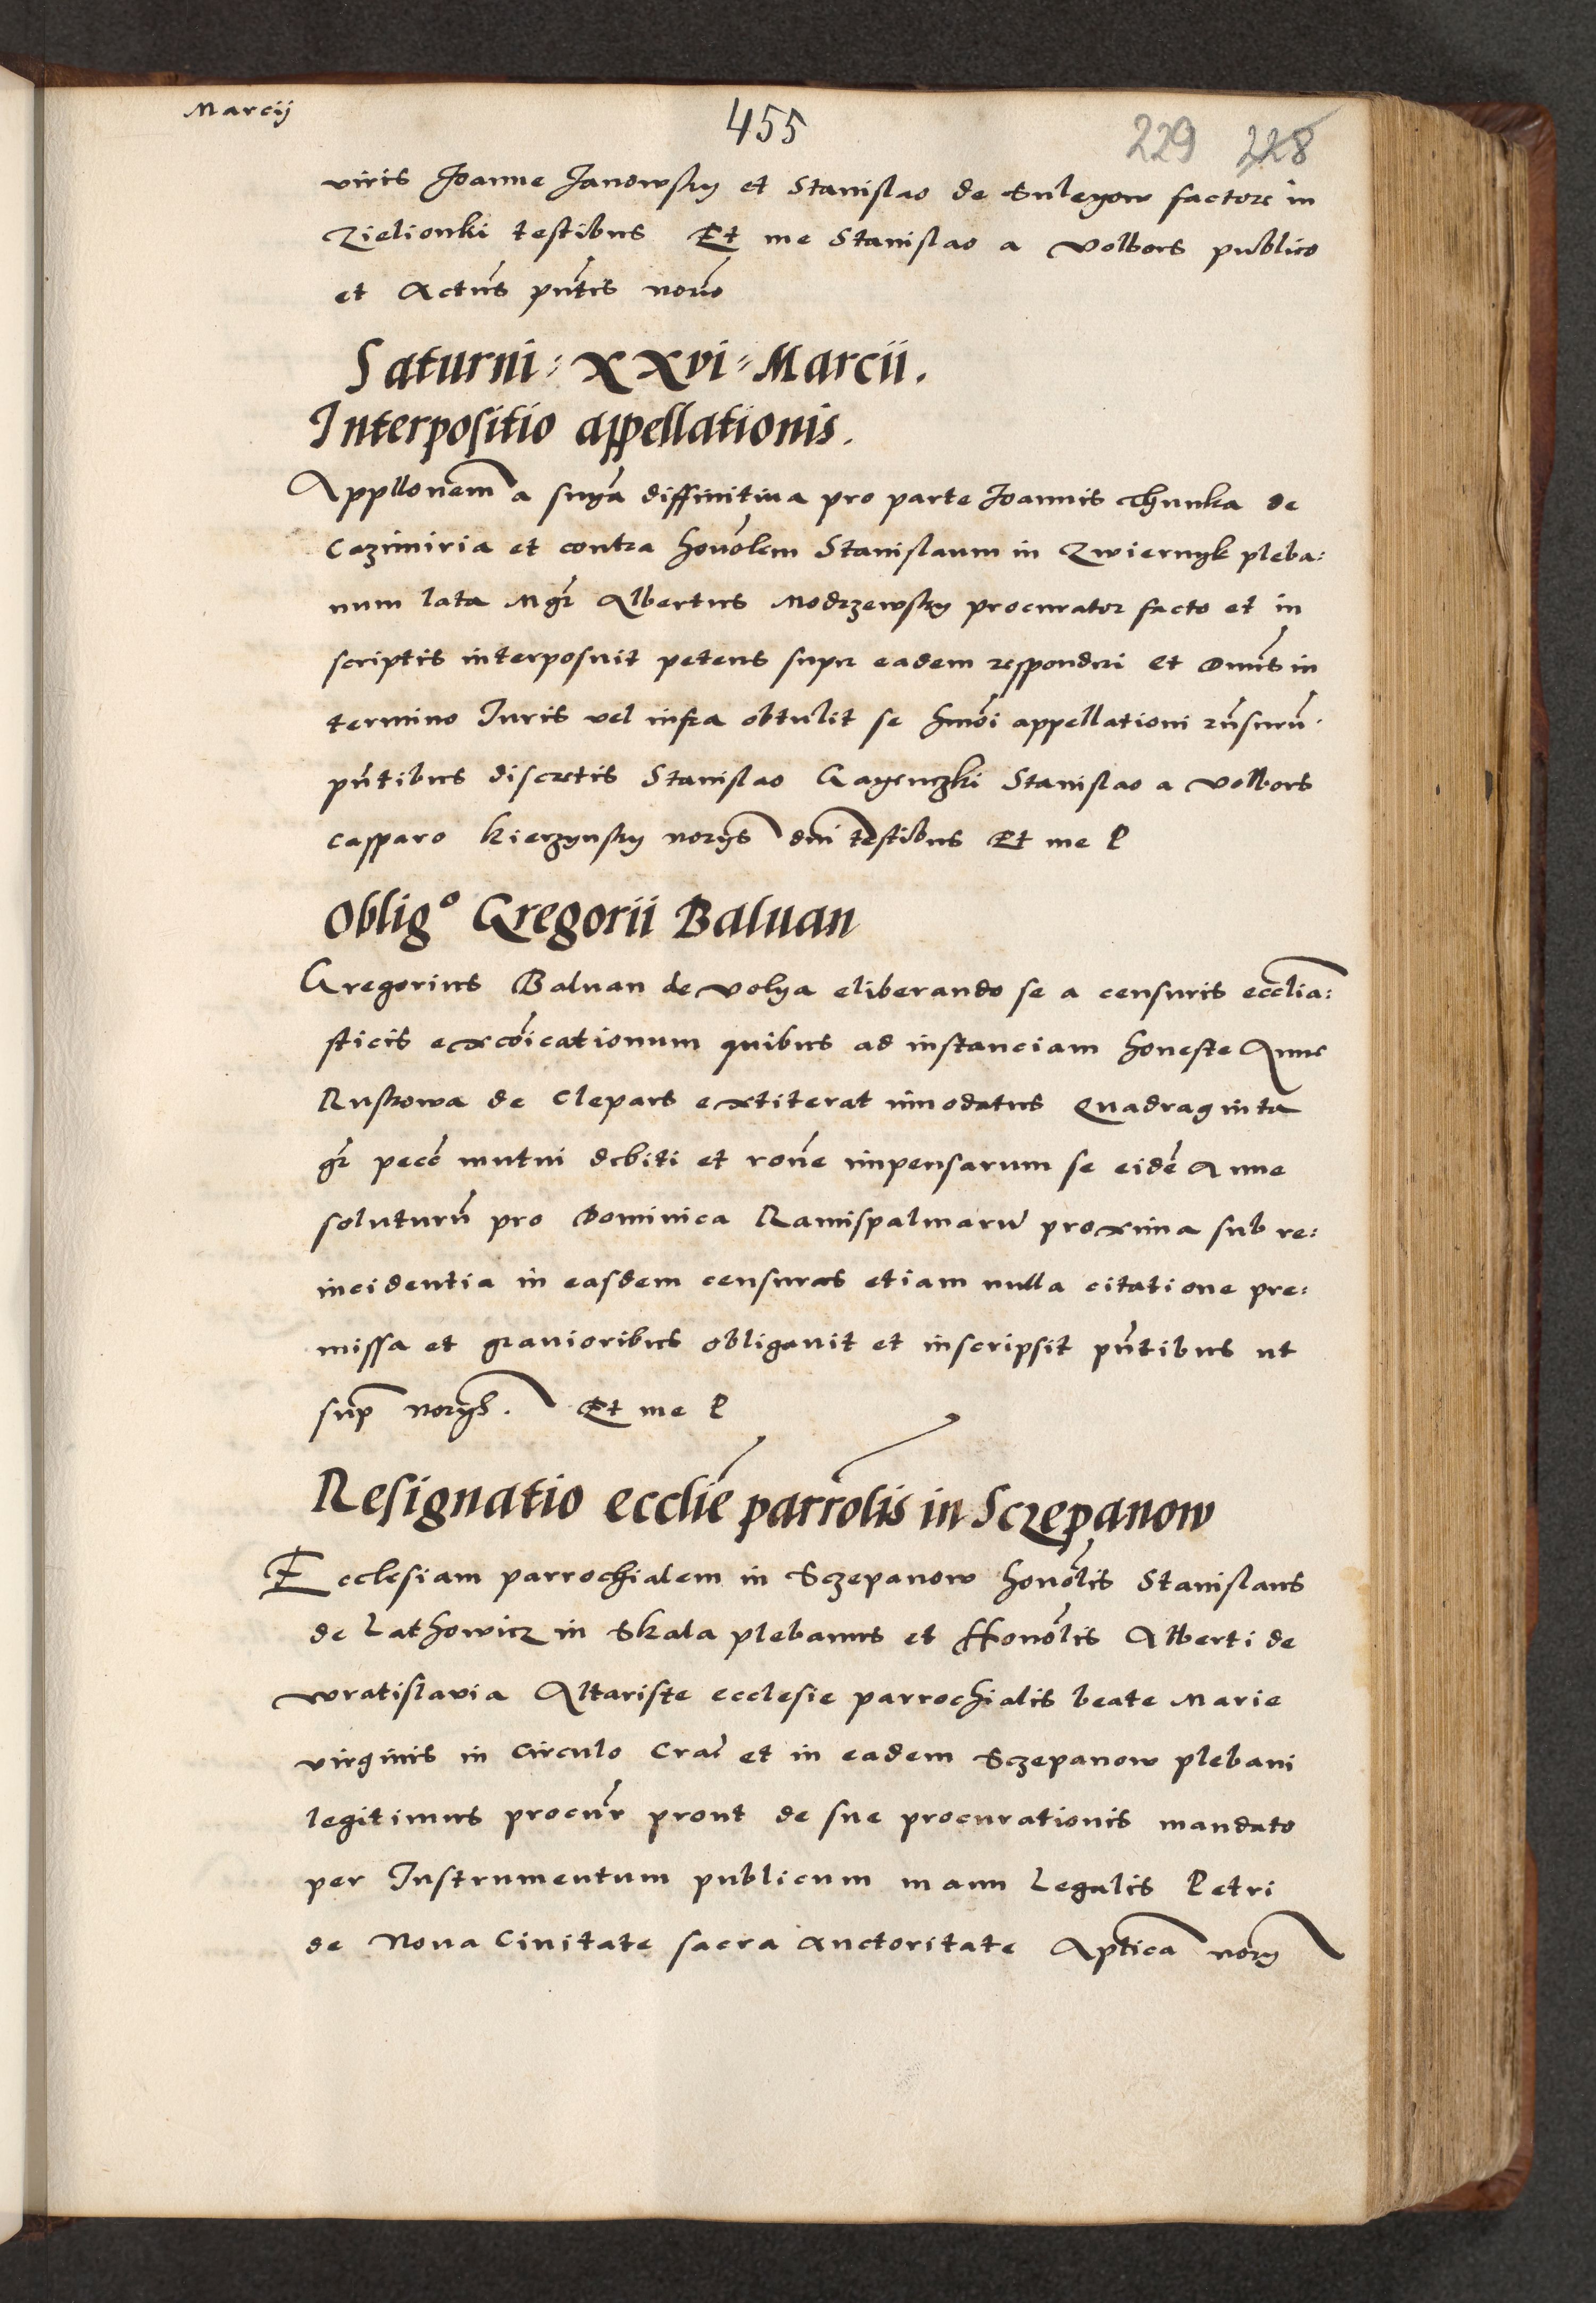 Marcij
455
229 228
viris Joanne Janowsky et Stanislao de Sulegow factore in
Zielionki testibus Et me Stanislao a Volbors publico
et Actus pn̄tis norio
Saturni = xxvi = Marcii.
Interpositio appellationis.
Appllonem a snīa diffinitiua pro parte Joannis Thunka de
Cazimiria et contra honōlem Stanislaum in Zwiernyk pleba:
num lata Mgr̄ Albertus Modrzewsky procurator facto et in
scriptis interposuit petens super eadem responderi et Dnūs in
termino Iuris vel infra obtulit se hmōi appellationi rn̄surū.
pn̄tibus discretis Stanislao Gayenczki Stanislao a Volbors
Casparo Kierzynsky norijs dni testibus Et me P
Oblig° Gregorii Baluan
Gregorius Baluan de Volya eliberando se a censuris ecclia:
sticis excōicationum quibus ad instanciam honeste Anne
Ruskowa de Clepars extiterat innodatus Quadraginta
gr̄ pecē mutui debiti et rōne impensarum se eidē Anne
soluturū pro Dominica Ramispalmarū proxima sub re:
incidentia in easdem censuras etiam nulla citatione pre:
missa et grauioribus obligauit et inscripsit pn̄tibus ut
sup̄ norijs. Et me P
Resignatio ecclīe parrōlis in Sczepanow
Ecclesiam parrochialem in Sczepanow honōlis Stanislaus
de Lathowicz in Skala plebanus et Honōlis Alberti de
wratislavia Altariste ecclesie parrochialis beate Marie
virginis in Circulo Crac̄ et in eadem Sczepanow plebani
legitimus procur̄ prout de sue procurationis mandato
per Instrumentum publicum manu Legalis Petri
de Noua Ciuitate sacra auctoritate Aptica norij